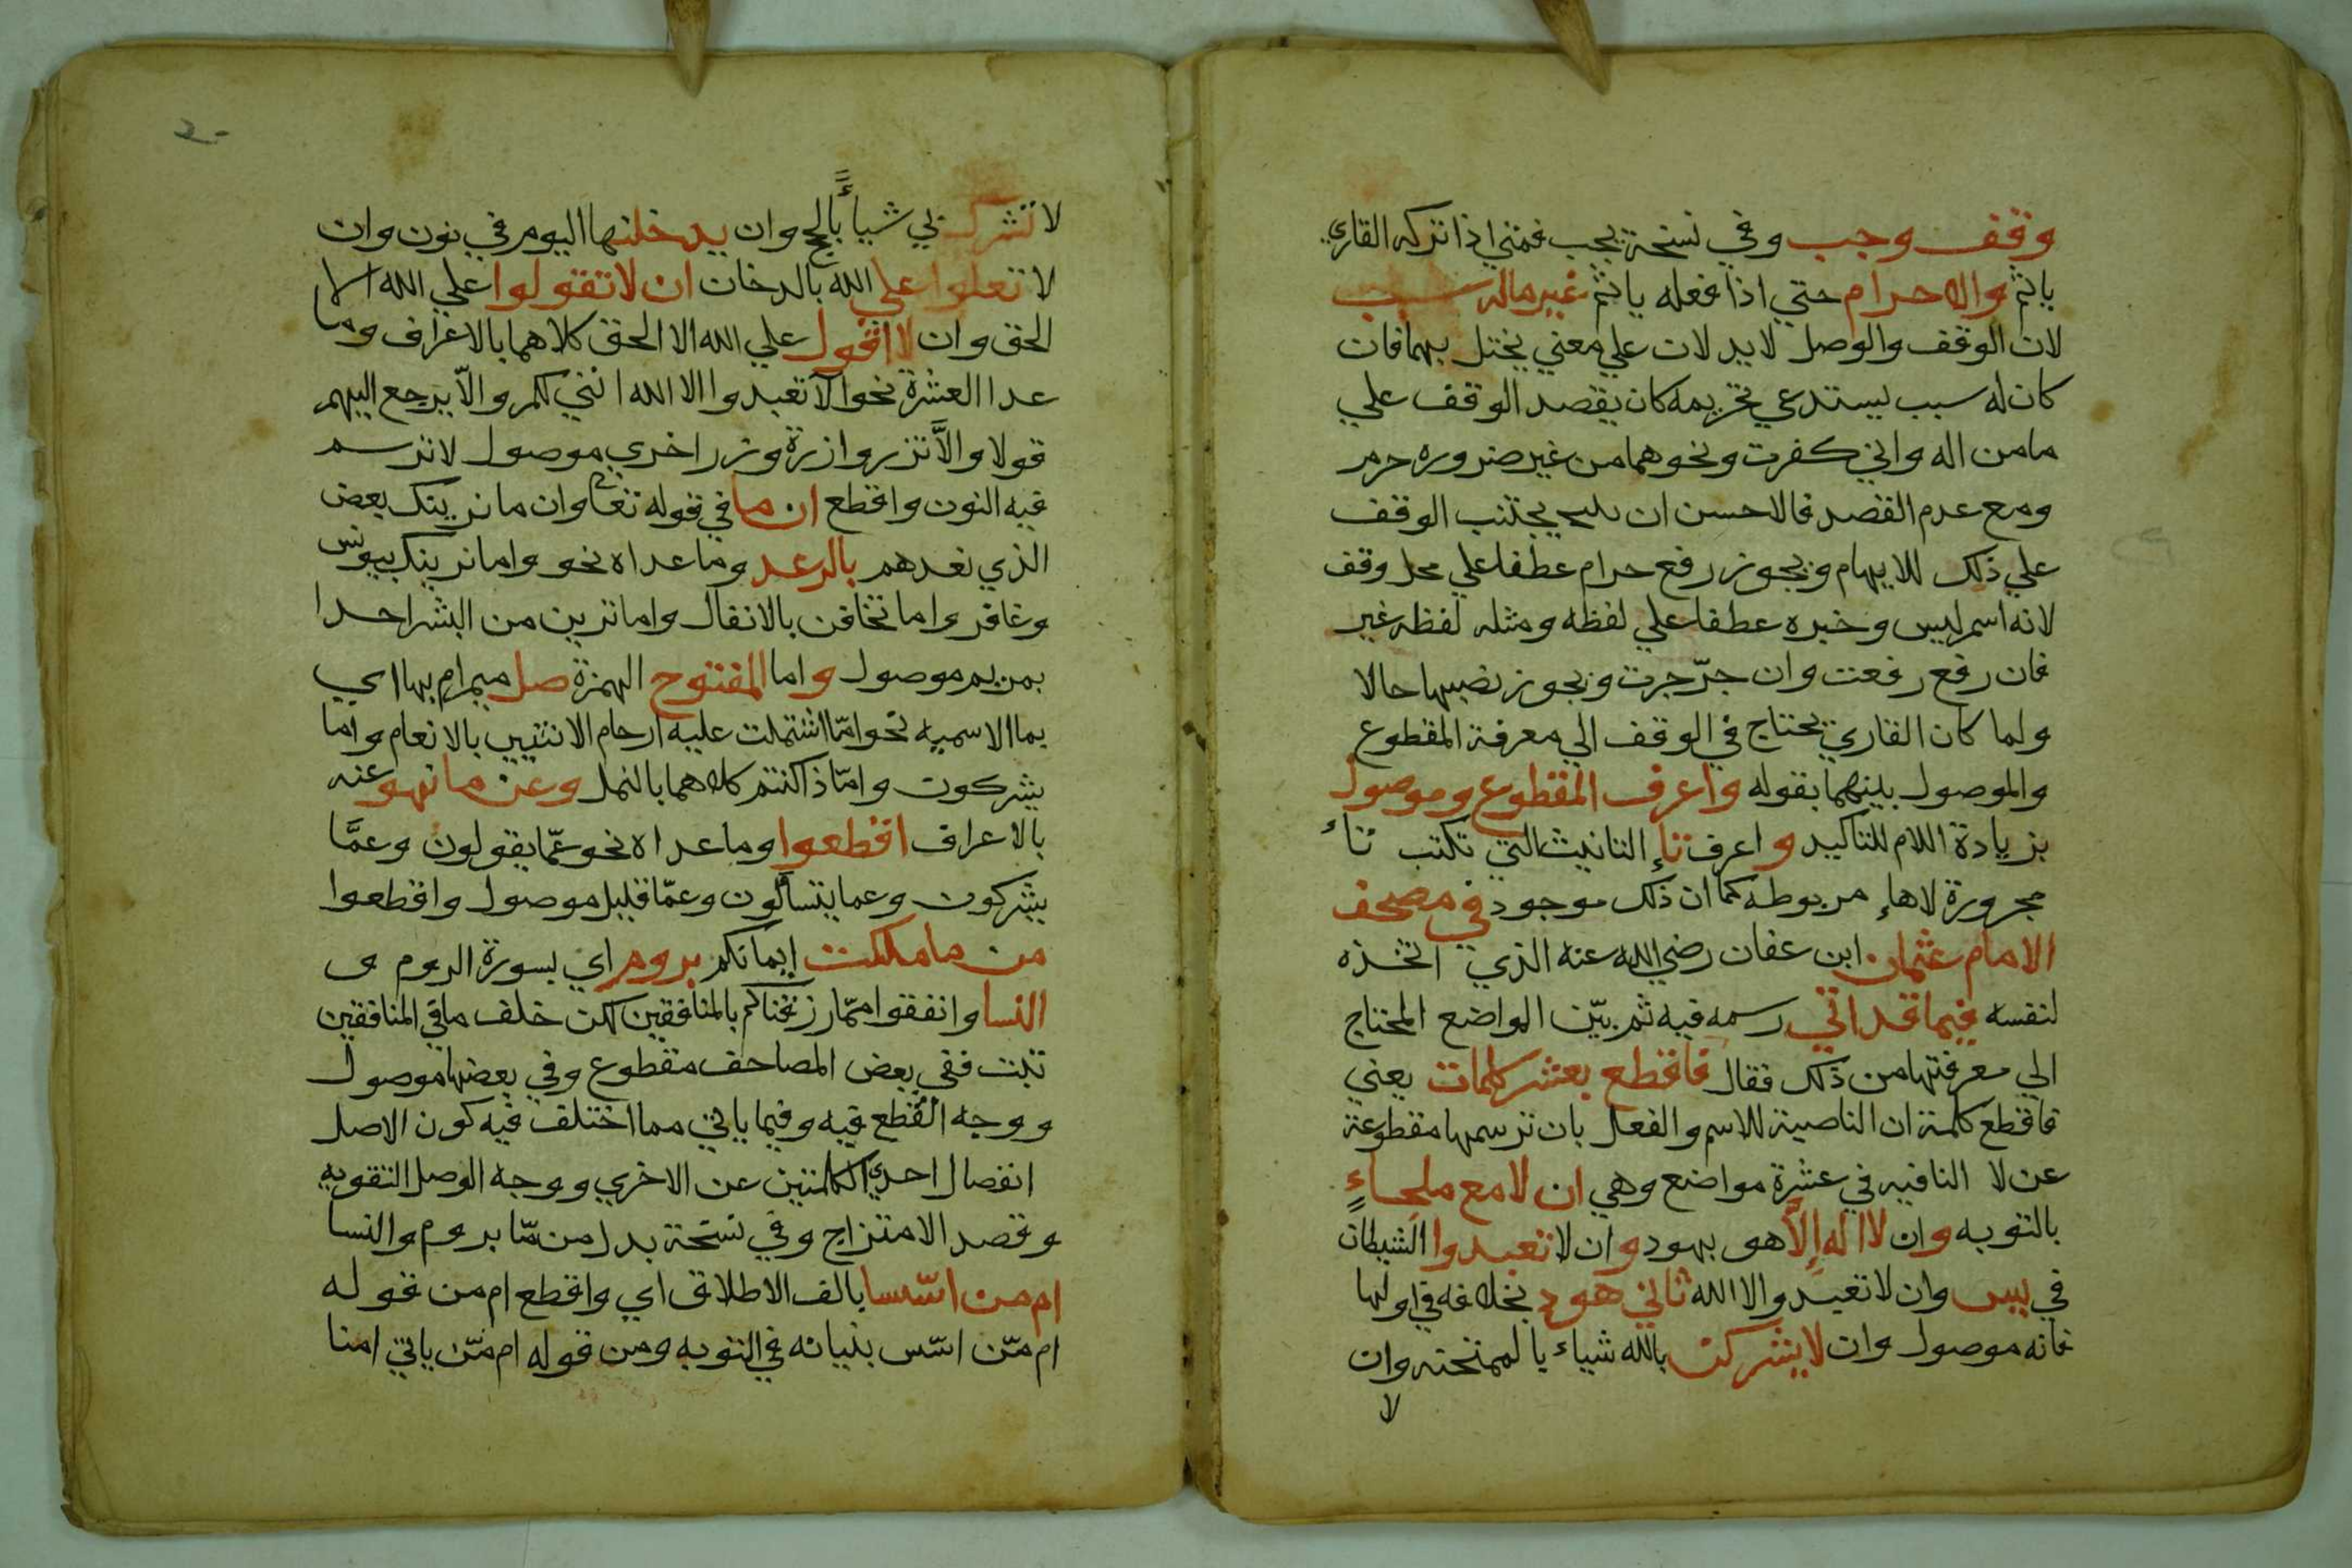 وقف وجب وفي نسخة يجب فمتي اذا تركه القاري
ياثم والا حرام حتي اذا فعله ياثم غير ماله سبب
لان الوقف والوصل لا يدلان علي معني يختل بهما فان
كان له سبب يستدعي تحريمه كان يقصد الوقف علي
ما من اله واني كفرت ونحوهما من غير ضروره حرم
ومع عدم القصد فالاحسن ان يجتنب الوقف
علي ذلك للايهام ويجوز رفع حرام عطفا علي محل وقف
لانه اسم ليس وخبره عطفا علي لفظه ومثله لفظه غير
فان رفع رفعت وان جرّ جرت ويجوز نصبها حالا
ولما كان القاري يحتاج في الوقف الي معرفة المقطوع
والموصول بينهما بقوله واعرف المقطوع وموصول
بزيادة اللام للتاكيد واعرف تاء التانيث التي تكتب تاء
مجرورة لا هاء مربوطه كما ان ذلك موجود في مصحف
الامام عثمان ابن عفان رضي الله عنه الذي اتخذه
لنفسه فيما قد اتي رسمه فيه ثم بيّن المواضع المحتاج
الي معرفتها من ذلك فقال فاقطع بعشر كلمات يعني
فاقطع كلمة ان الناصبة للاسم والفعل بان ترسمها مقطوعة
عن لا النافيه في عشرة مواضع وهي ان لا مع ملجاءٍ
بالتوبه وان لا اله إلّا هو بهود وان لا تعبدوا الشيطان
في يس وان لا تعبدوا الا الله ثاني هود بخلافه في اولها
فانه موصول وان لا يشركن بالله شياء يا لممتحنه وان
لا
٢٠
لا تشرك بي شياءً بالحج وان يدخلنها اليوم في نون وان
لا تعلوا علي الله بالدخان ان لا تقولوا علي الله الا
الحق وان لا اقول علي الله الا الحق كلاهما بالاعراف وما
عدا العشرة نحو الا تعبدوا الا الله انني لكم والّا يرجع اليهم
قولا والّا تزر وازرة وزر اخري موصول لا ترسم
فيه النون واقطع ان ما في قوله تعا وان ما نرينك بعض
الذي نعدهم بالرعد وما عداه نحو واما نرينك بيونس
وغافر واما تخافن بالانفال واما ترين من البشر احدا
بمريم موصول واما المفتوح الهمزة صل ميم ام بها اي
بما الاسميه نحو امّا اشتملت عليه ارحام الانثيين بالانعام واما
يشركون وامّا ذا كنتم كلاهما بالنمل وعن ما نهو عنه
بالاعراف اقطعوا وما عداه نحو عمّا يقولون وعمَّا
يشركون وعما يتسألون وعمّا قليل موصول واقطعوا
من ما ملكت إيمانكم بروم اي بسورة الروم و
النسا وانفقوا ممّا رزقناكم بالمنافقين لكن خلف ما في المنافقين
ثبت ففي بعض المصاحف مقطوع وفي بعضها موصول
ووجه القطع فيه وفيما ياتي مما اختلف فيه كون الاصل
انفصال احدي الكلمتين عن الاخري ووجه الوصل التقويه
وقصد الامتزاج وفي نسخة بدل من مّا بروم والنسا
ام من اسّسا بالف الاطلاق اي واقطع ام من قوله
ام مّن اسّس بنيانه في التوبه ومن قوله ام مّن ياتي امنا